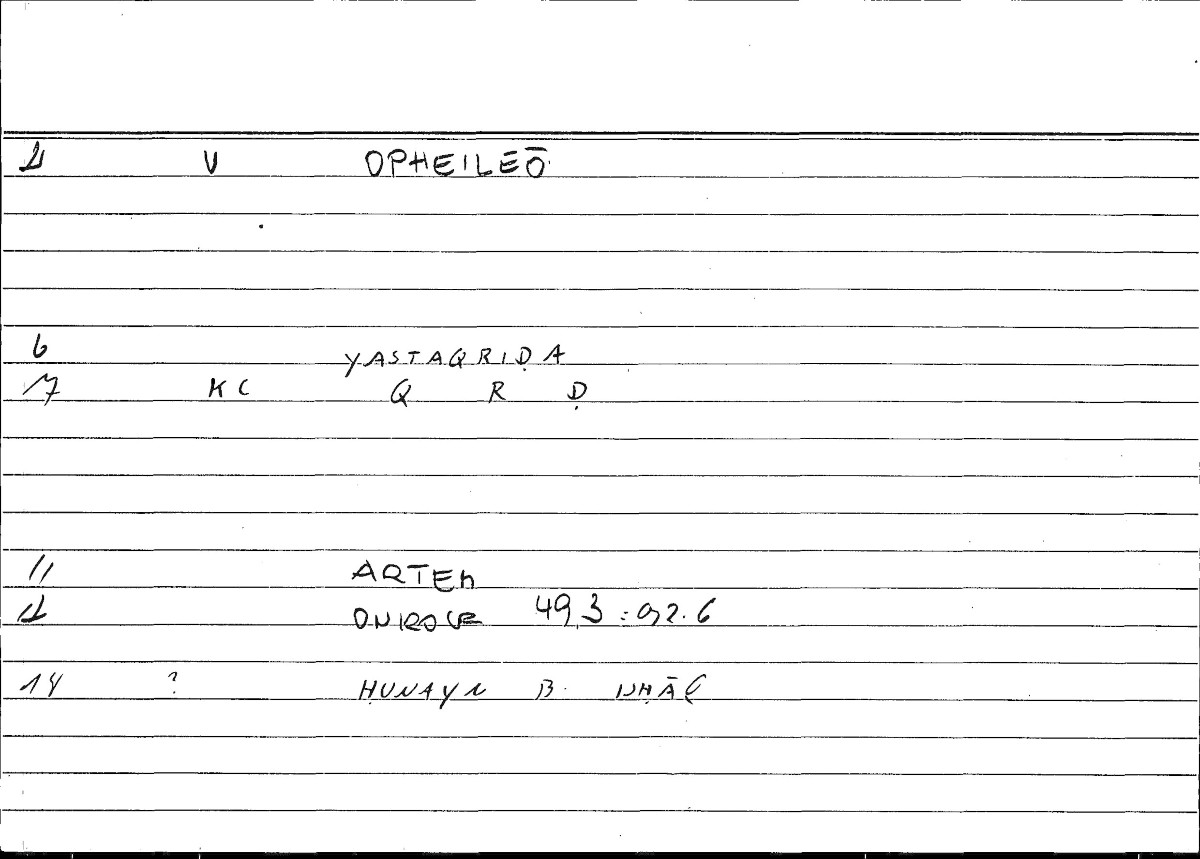 V OPHEILEŌ
6 YASTAQRIḌA
17 KC Q R Ḍ
11 ARTEM
ONIROCR 49,3 : 92.6
14 ? ḤUNAYN B. ISḤĀQ